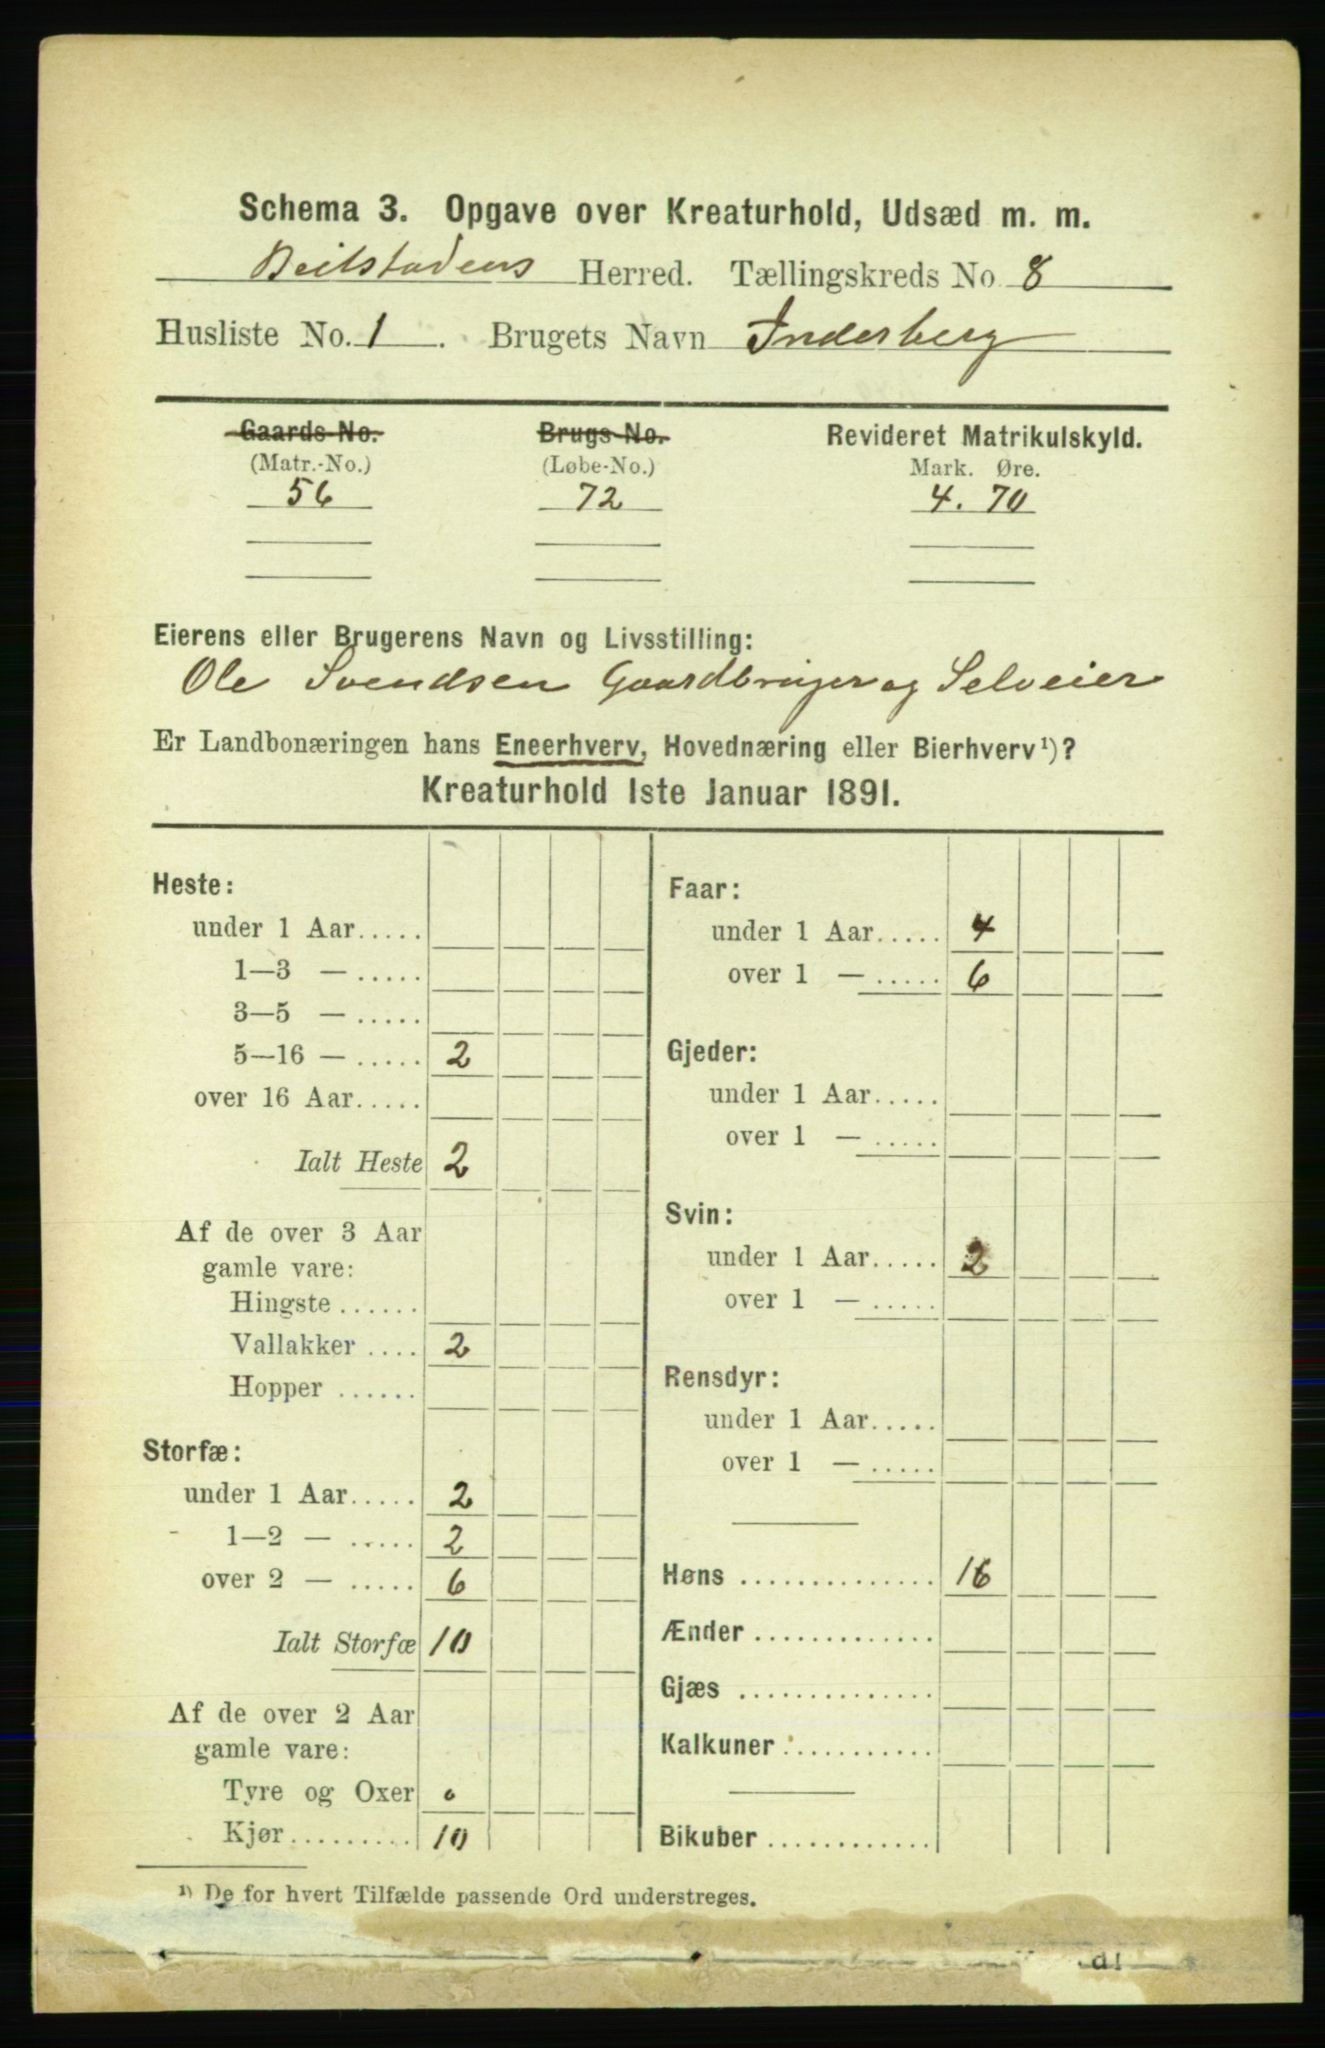 Schema 3. Opgave over Kreaturhold, Udsæd m. m.
Beitstadens Herred. Tællingskreds No. 8
Husliste No. 1. Brugets Navn Inderberg
Gaards-No. Brugs-No. Revideret Matrikulskyld.
(Matr.-No.) (Løbe-No.) Mark. Øre.
56 72 4. 70
Eierens eller Brugerens Navn og Livsstilling:
Ole Svendsen Gaardbruger og Selveier
Er Landbonæringen hans Eneerhverv, Hovednæring eller Bierhverv¹)?
Kreaturhold 1ste Januar 1891.
Heste:
under 1 Aar.....
1—3 — .....
3—5 — .....
5—16 — ..... 2
over 16 Aar.....
Ialt Heste 2
Af de over 3 Aar
gamle vare:
Hingste ......
Vallakker .... 2
Hopper ......
Storfæ:
under 1 Aar..... 2
1—2 — ..... 2
over 2 — ..... 6
Ialt Storfæ 10
Af de over 2 Aar
gamle vare:
Tyre og Oxer 0
Kjør......... 10
Faar:
under 1 Aar..... 4
over 1 — ..... 6
Gjeder:
under 1 Aar.....
over 1 — .....
Svin:
under 1 Aar..... 2
over 1 — .....
Rensdyr:
under 1 Aar.....
over 1 — .....
Høns .............. 16
Ænder .............
Gjæs ..............
Kalkuner ...........
Bikuber ............
¹) De for hvert Tilfælde passende Ord understreges.